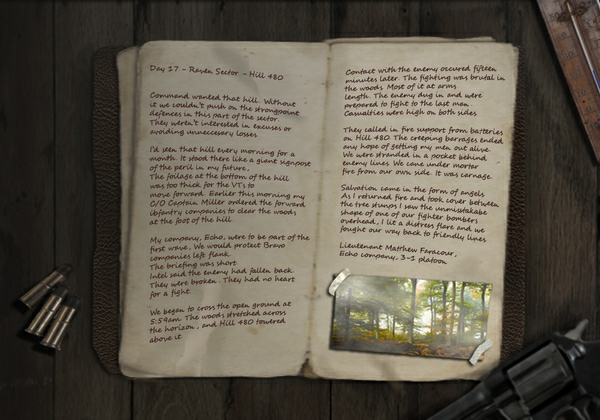 Day 17 - Raven Sector - Hill 480
Command wanted that hill. Without
it we couldn't push on the strongpoint
defences in this part of the sector.
They weren't interested in excuses or
avoiding unneccesary losses.
I'd seen that hill every morning for a
month. It stood there like a giant signpost
of the peril in my future.
The foilage at the bottom of the hill
was too thick for the VT's to
move forward. Earlier this morning my
C/O Captain Miller ordered the forward
ibfantry companies to clear the woods
at the foot of the hill.
My company, Echo, were to be part of the
first wave. We would protect Bravo
companies left flank.
The briefing was short.
Intel said the enemy had fallen back.
They were broken. They had no heart
for a fight.
We began to cross the open ground at
5:59am. The woods stretched across
the horizon, and Hill 480 towered
above it.
Contact with the enemy occured fifteen
minutes later. The fighting was brutal in
the woods. Most of it at arms
length. The enemy dug in and were
prepared to fight to the last man.
Casualties were high on both sides.
They called in fire support from batteries
on Hill 480. The creeping barrages ended
any hope of getting my men out alive.
We were stranded in a pocket behind
enemy lines. We came under mortar
fire from our own side. It was carnage.
Salvation came in the form of angels.
As I returned fire and took cover between
the tree stumps I saw the unmisstakabe
shape of one of our fighter bombers
overhead, I lit a distress flare and we
fought our way back to friendly lines.
Lieutenant Matthew Faracour,
Echo company, 3-1 platoon